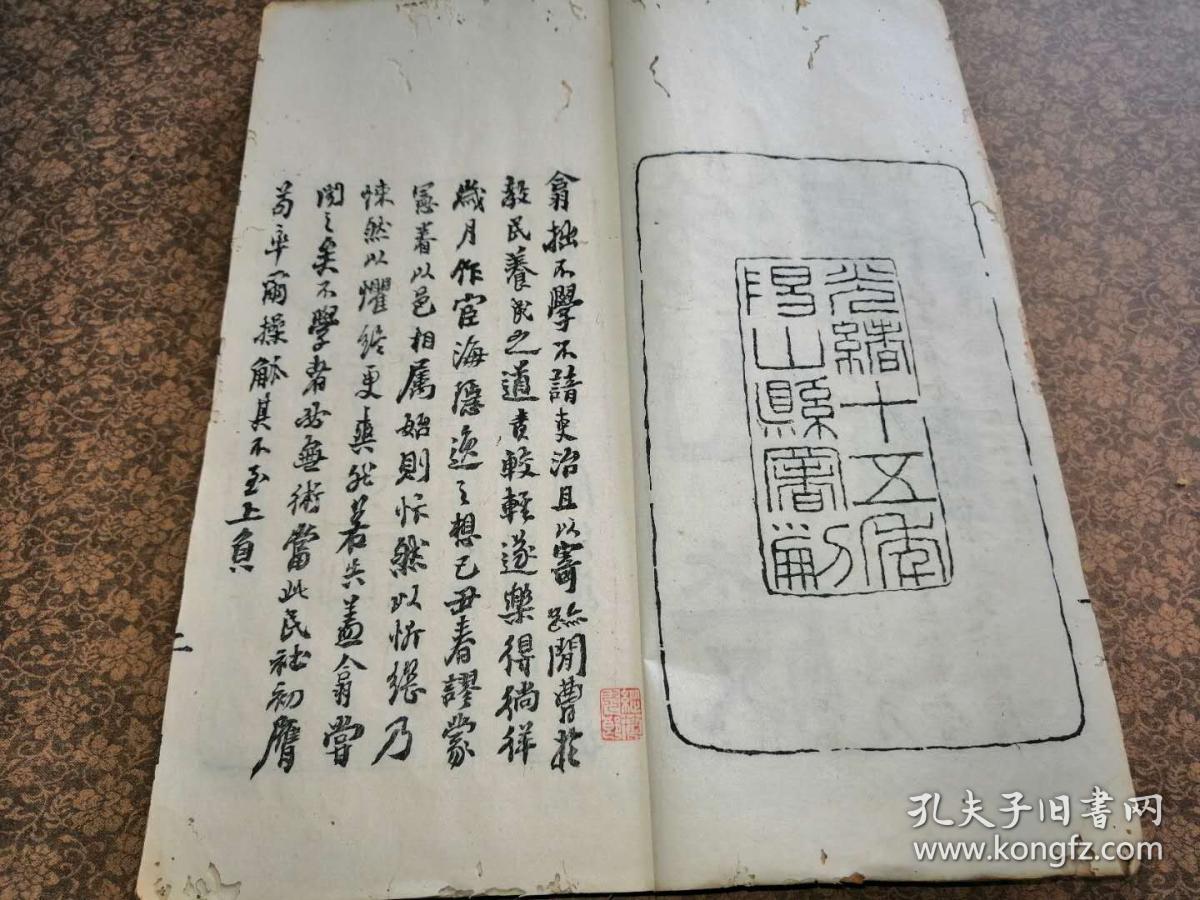 光緒十五年
陽山縣署刷
翕拙不學不諳吏治且以寄跡閒曹於
教民養民之道責較輕遂樂得徜徉
歲月作宦海隱逸之想己丑春謬蒙
憲眷以邑相属始則忻然以忻繼乃
悚然以懼終更爽然若失盖翕嘗
聞之矣不學者必無術當此民社初膺
苟率爾操觚其不至上負
二
孔夫子旧书网
www.kongfz.com